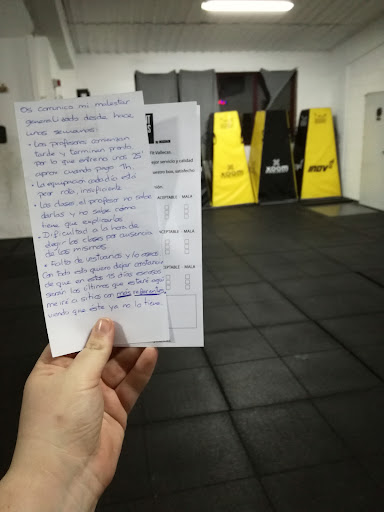 Os comunico mi malestar
generalizado desde hace
unas semanas:
• Los profesores comienzan
tarde y terminan pronto
por lo que entreno unos 25'
aprox cuando pago 1h
• La equipación cada día está
peor rota, insuficiente.
• Las clases el profesor no sabe
darlas y no sabe como
tiene que explicarlas
• Dificultad a la hora de
elegir las clases por ausencia
de las mismas.
• Falta de vestuarios y/o aseos.
Con todo esto quiero dejar constancia
de que en estos 15 días escasos
serán los últimos que estaré aquí
me iré a sitios con más referentes
viendo que este ya no lo tiene.
& MOOVE
Vallecas
servicio y calidad
ACEPTABLE MALA
ACEPTABLE MALA
ACEPTABLE MALA
XOOM
XOOM
XOOM
INOV